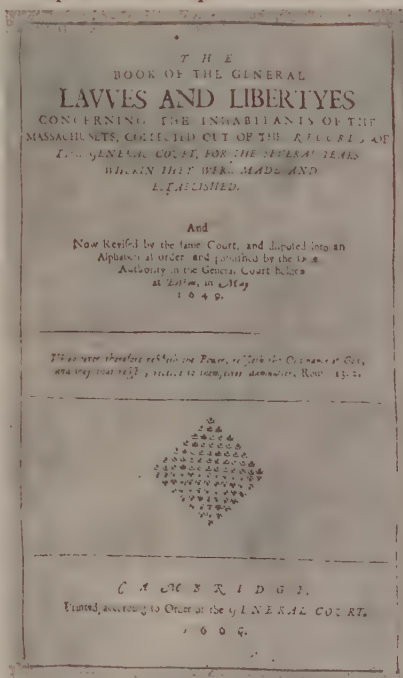 THE
BOOK OF THE GENERAL
LAVVES AND LIBERTYES
CONCERNING THE INHABITANTS OF THE
MASSACHUSETS, COLLECTED OUT OF THE RECORDS OF
THE GENERAL COURT, FOR THE SEVERAL YEARS
WHERIN THEY WERE MADE AND
ESTABLISHED.
And
Now Revised by the same Court, and disposed into an
Alphabetical order and published by the same
Authority in the General Court holden
at Boston, in May
1649.
therefore resisteth the Power, resisteth the Ordinance of God,
and they that resist, receive to themselves damnation. Rom. 13.2.
CAMBRIDGE,
Printed according to Order of the GENERAL COURT.